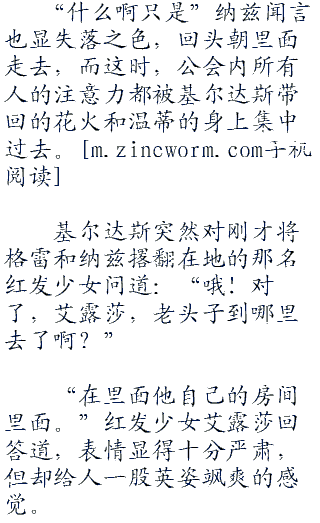 “什么啊只是”纳兹闻言
也显失落之色，回头朝里面
走去，而这时，公会内所有
人的注意力都被基尔达斯带
回的花火和温蒂的身上集中
过去。[m.zincworm.com手机
阅读]
基尔达斯突然对刚才将
格雷和纳兹撂翻在地的那名
红发少女问道：“哦！对
了，艾露莎，老头子到哪里
去了啊？”
“在里面他自己的房间
里面。”红发少女艾露莎回
答道，表情显得十分严肃，
但却给人一股英姿飒爽的感
觉。